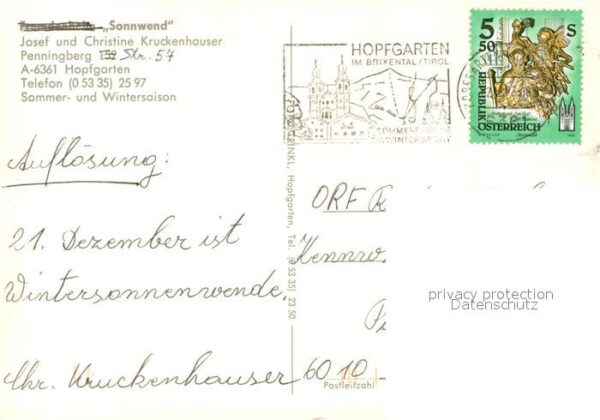 Fremdenheim „Sonnwend"
Josef und Christine Kruckenhauser
Penningberg 152 Str. 54
A-6361 Hopfgarten
Telefon (0 53 35) 25 97
Sommer- und Wintersaison
HOPFGARTEN
IM BRIXENTAL/TIROL
WINTERSPORT
5 50 S
REPUBLIK
ÖSTERREICH
Auflösung:
21. Dezember ist
Wintersonnenwende.
Chr. Kruckenhauser
Hopfgarten, Tel. (0 53 35) 23 50
ORF
Kennw.
6010
Postleitzahl
privacy protection
Datenschutz